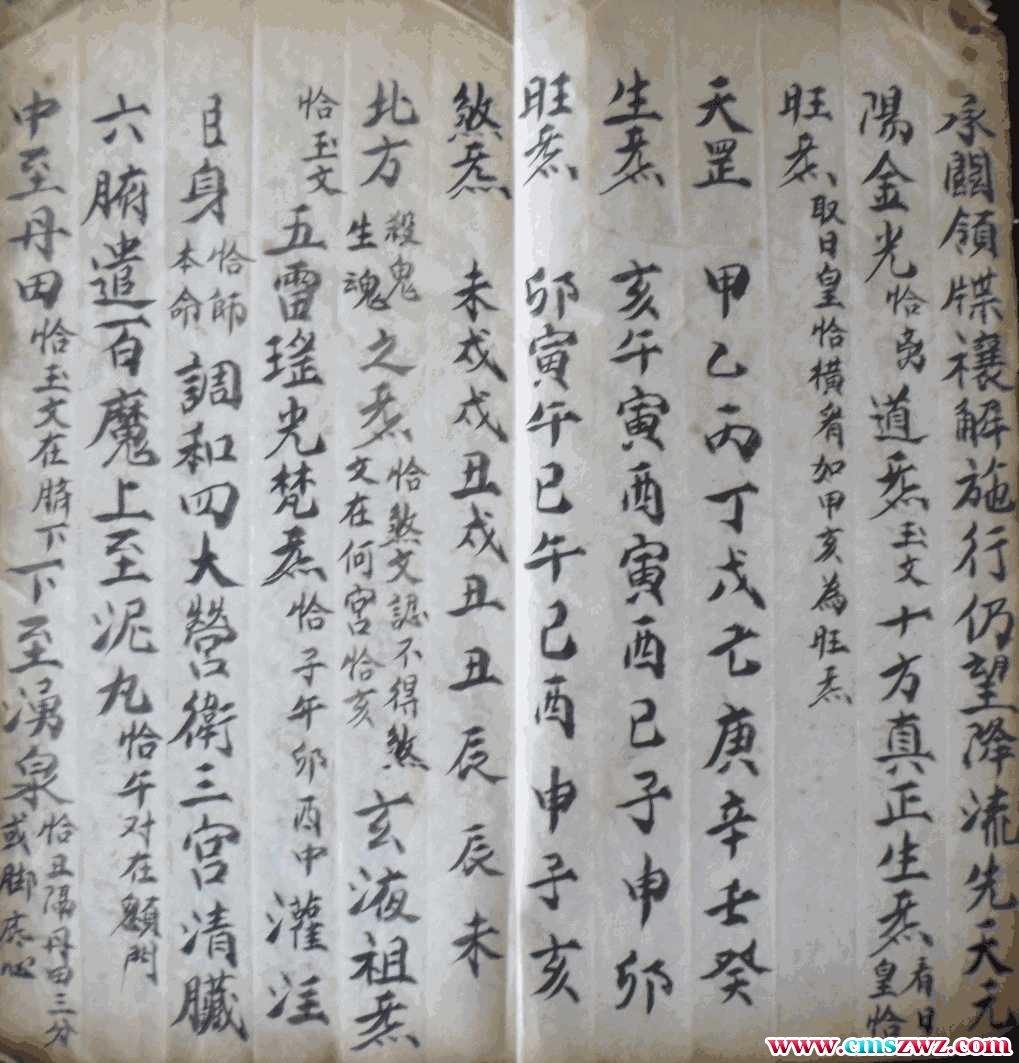 承闗領牒禳解施行仍望降流先天元
陽金光恰亥道炁玉文十方真正生炁看日皇恰
旺炁取日皇恰橫看如甲亥為旺炁
天罡 甲乙丙丁戊己庚辛壬癸
生炁 亥午寅酉寅酉巳子申卯
旺炁 卯寅午巳午巳酉申子亥
煞炁 未戍戍丑戍丑丑辰辰未
北方殺鬼生魂之炁恰煞文認不得煞文在何宮恰亥玄液祖炁
恰玉文五雷瑤光梵炁恰子午卯酉中灌注
身恰師本命調和四大營衛三宫清臟
六腑遣百魔上至泥丸恰午对在額門
中至丹田恰玉文在臍下下至湧泉恰丑隔丹田三分或脚底心
www.cmszwz.com